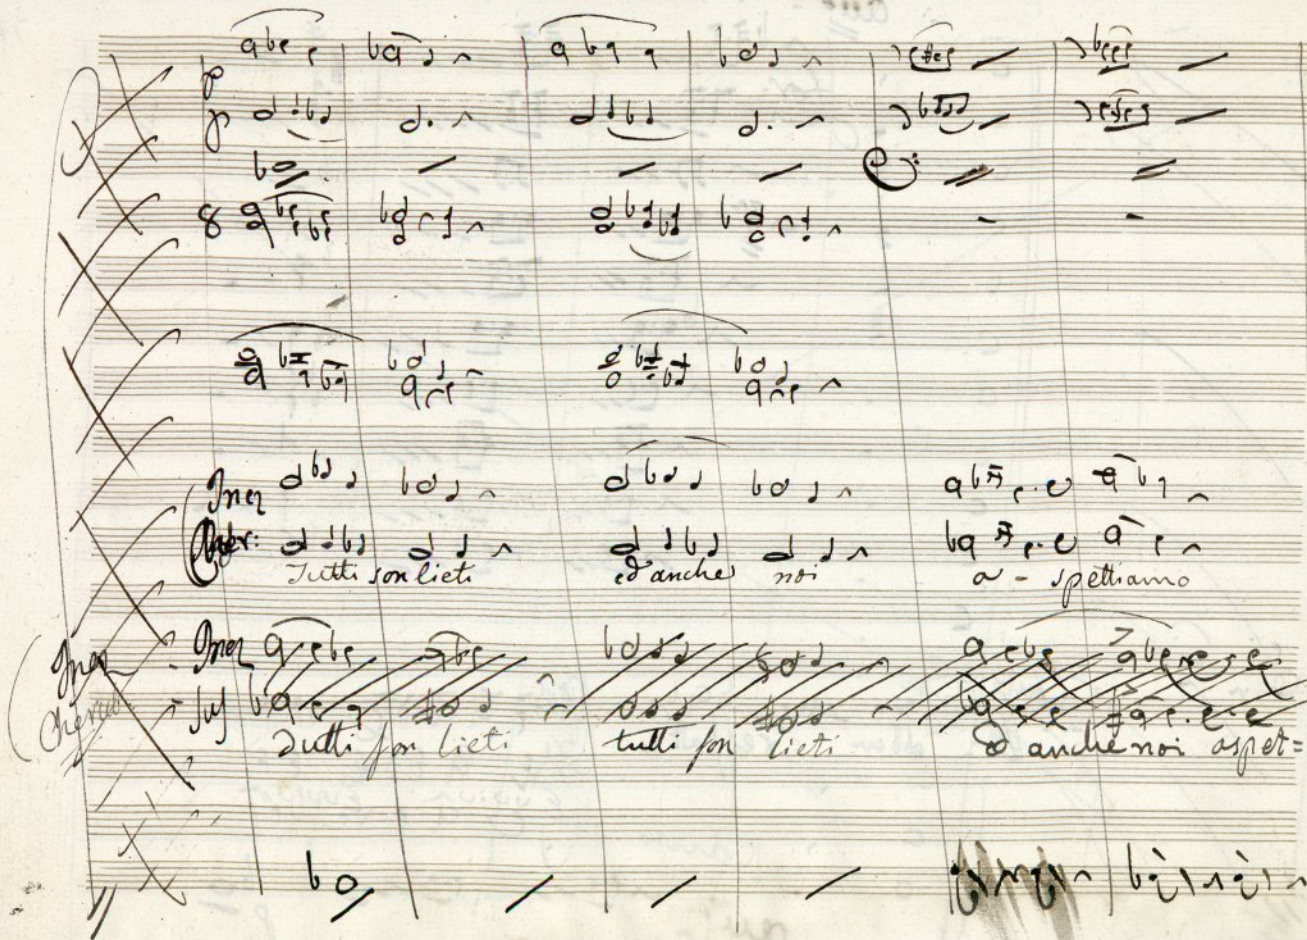 p
p
8
Inez
Cher:
Tutti son lieti ed anche noi a - spettiamo
Inez
Inez
Tutti son lieti tutti son lieti ed anche noi aspet=